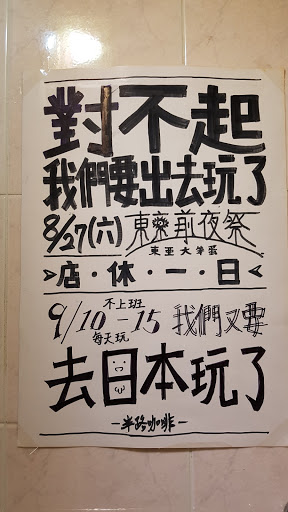 對不起
我們要出去玩了
8/27(六)東藥前夜祭
東亜大学蛋
>店·休·一·日<
不上班
9/10-15 我們又要
每天玩
去日本玩了
-半路咖啡-